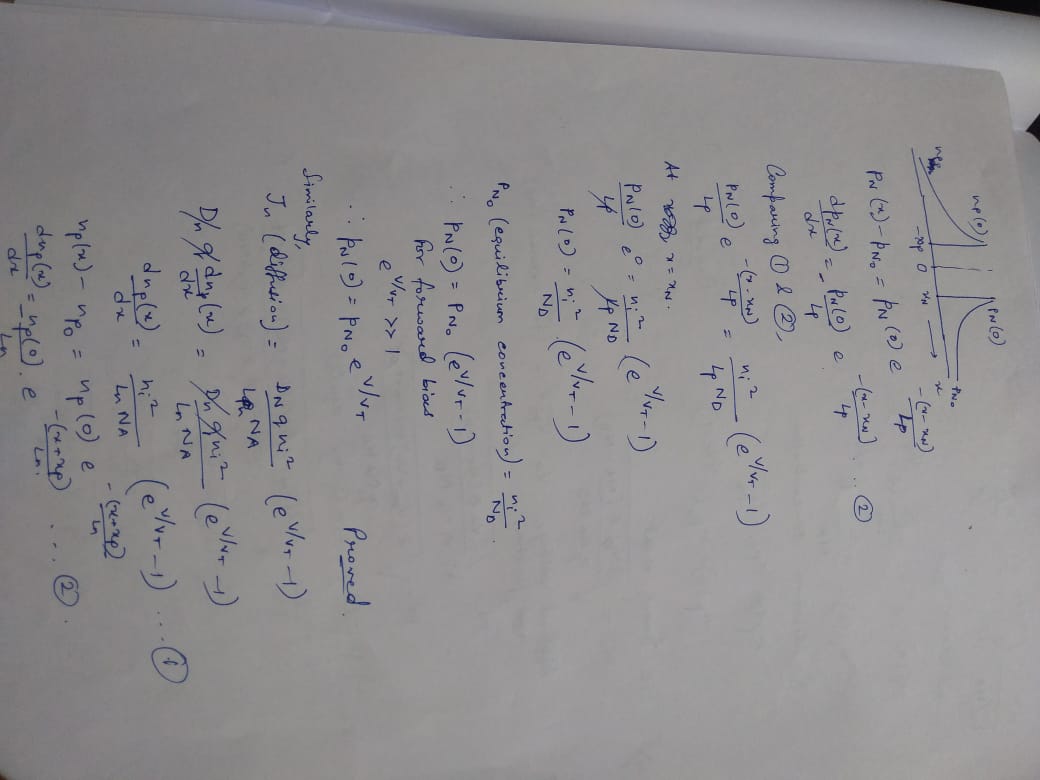 np(0) PN(0)
-xp 0 xN → x PN₀
PN(x) - PN₀ = PN(0) e^(-(x-xN)/Lp)
dPN(x)/dx = - PN(0)/Lp e^(-(x-xN)/Lp) ... ②
Comparing ① & ②,
PN(0)/Lp e^(-(x-xN)/Lp) = ni²/(Lp ND) (e^(V/VT) - 1)
At x = xN.
PN(0)/Lp e⁰ = ni²/(Lp ND) (e^(V/VT) - 1)
PN(0) = ni²/ND (e^(V/VT) - 1)
PN₀ (equilibrium concentration) = ni²/ND.
∴ PN(0) = PN₀ (e^(V/VT) - 1)
for forward bias
e^(V/VT) >> 1
∴ PN(0) = PN₀ e^(V/VT) Proved.
Similarly,
Jn (diffusion) = DN q ni²/(Ln NA) (e^(V/VT) - 1)
Dn q dnp(x)/dx = Dn q ni²/(Ln NA) (e^(V/VT) - 1)
dnp(x)/dx = ni²/(Ln NA) (e^(V/VT) - 1) ... ①
np(x) - np₀ = np(0) e^(-(x+xp)/Ln)
dnp(x)/dx = -np(0)/Ln . e^(-(x+xp)/Ln) ... ②.